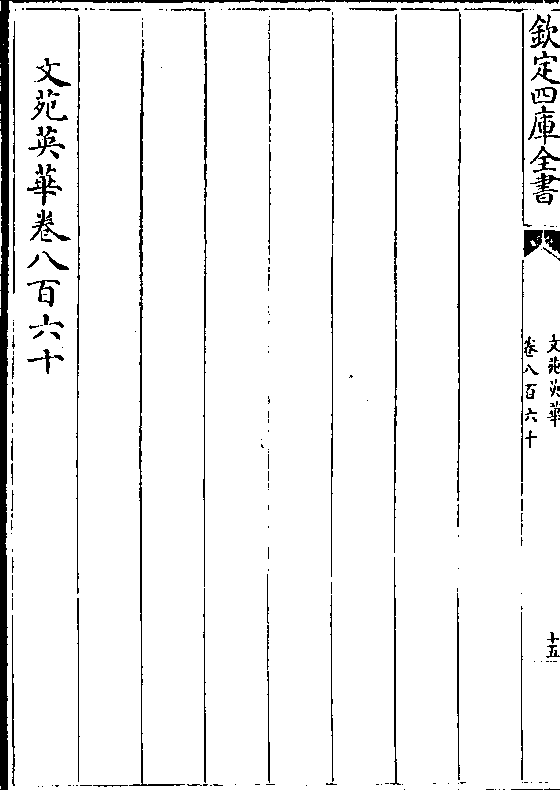 欽定四庫全書
文苑英華
卷八百六十
十五
文苑英華卷八百六十